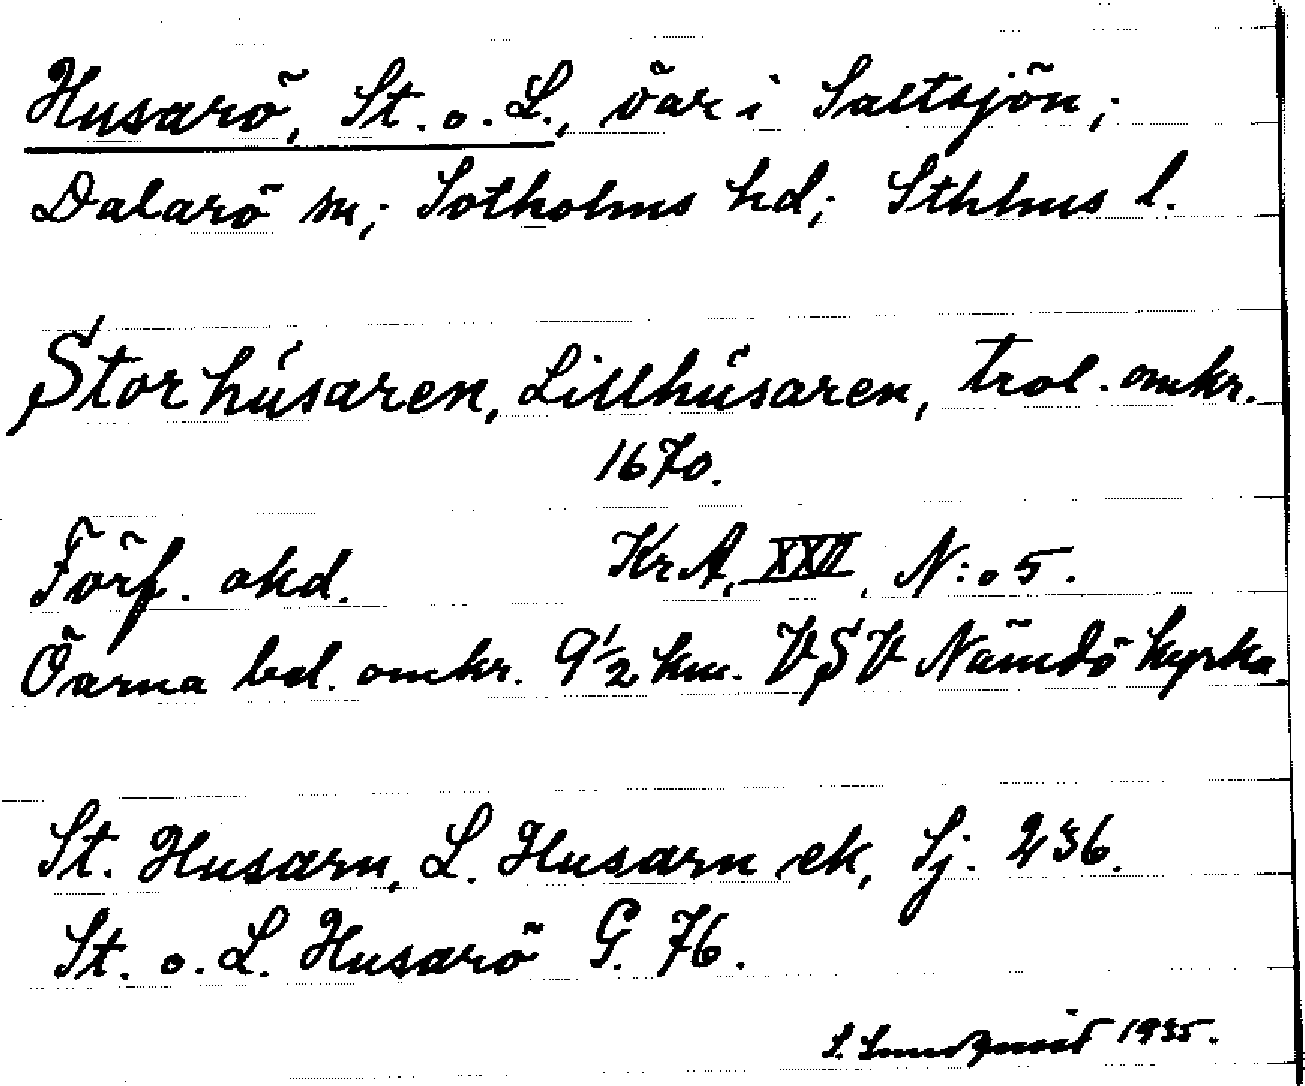 Husarö, St. o. L., öar i Saltsjön;
Dalarö sn; Sotholms hd; Sthlms l.
Storhúsaren, Lillhúsaren, trol. omkr.
1670.
Förf. okd. KrA, XXII, N:o 5.
Öarna bel. omkr. 9½ km. VSV Nämdö kyrka.
St. Husarn, L. Husarn ek, Sj. 236.
St. o. L. Husarö G. 76.
S. Lundqvist 1935.